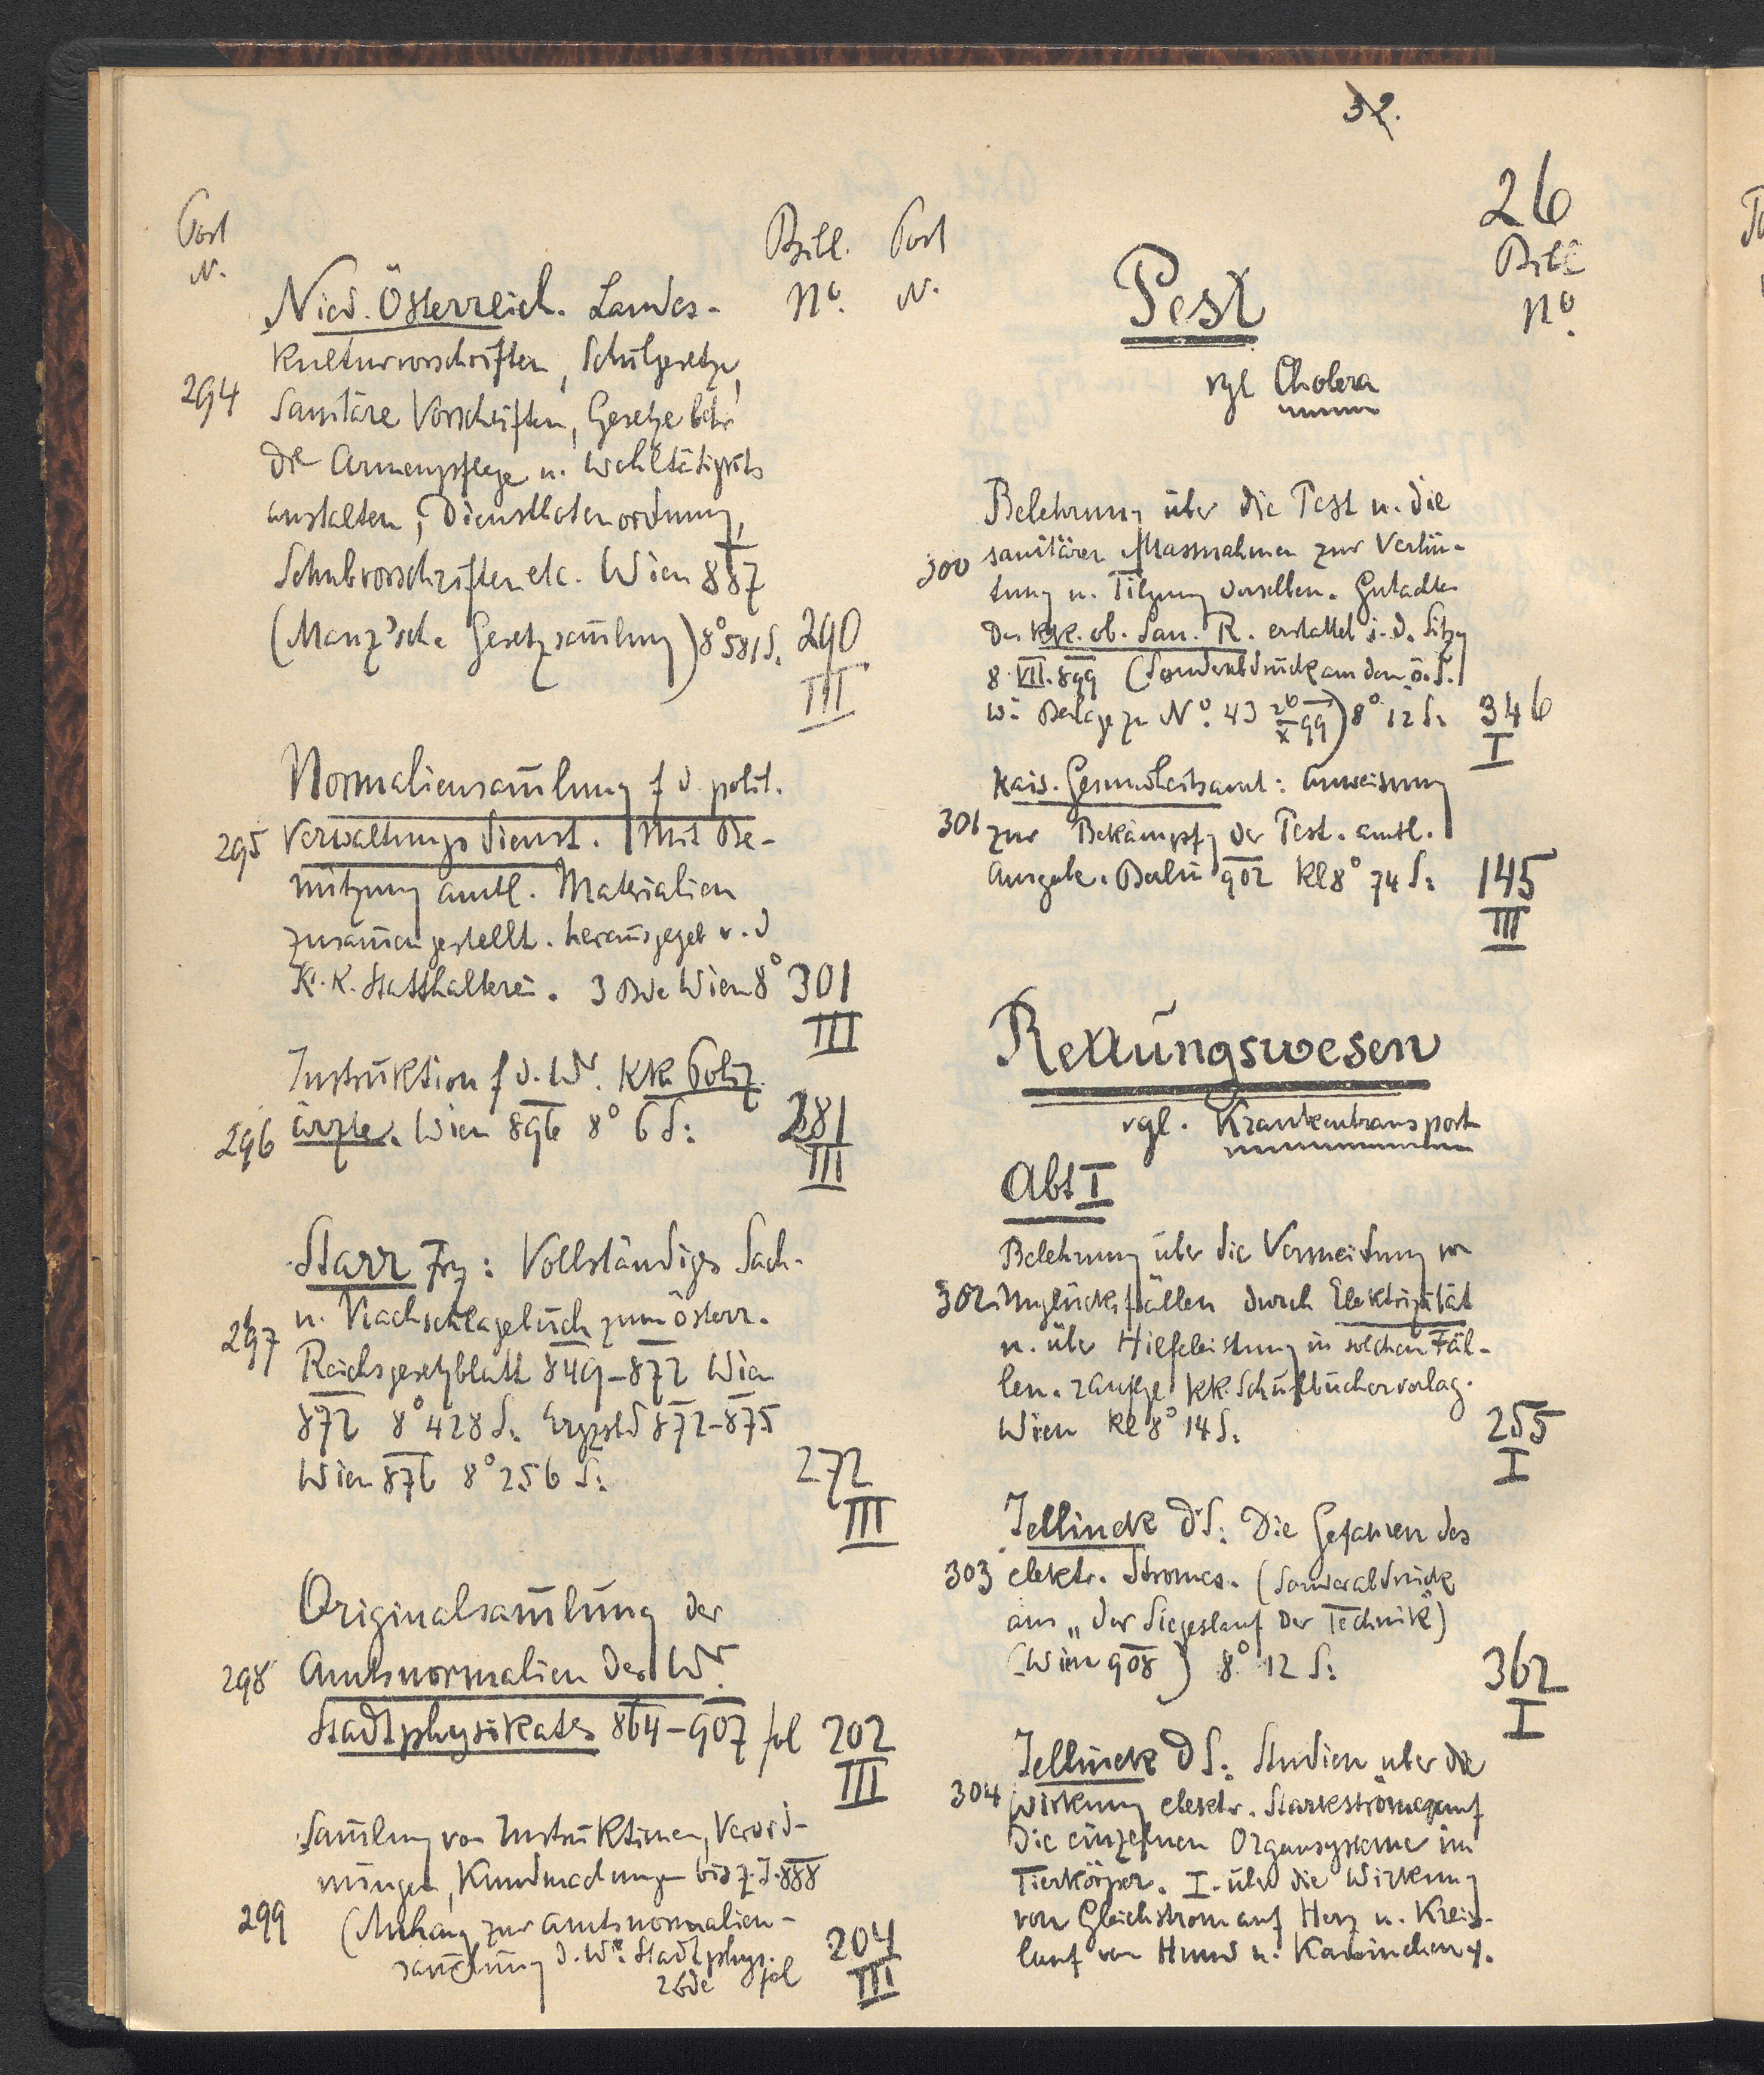 32.
26
Post
N.
Bibl.
No.
Nied. Österreich. Landes-
kulturvorschriften, Schulgesetze,
294
Sanitäre Vorschriften, Gesetze betr
die Armenpflege u. Wohltätigkts
anstalten, Dienstbotenordnung,
Schubvorschriften etc. Wien 887
(Manz'sche Gesetzsam̄lung) 8° 581 S.
290
III
Normaliensam̄lung f d. polit.
295
Verwaltungsdienst. Mit Be-
nützung amtl. Materialien
zusam̄engestellt. herausgegeb v. d
K. K. Statthalterei. 3 Bde Wien 8°
301
III
Instruktion f d. Wr. kk. Polz.
296
ärzte. Wien 896 8° 6 S:
281
III
Starr Frz: Vollständiges Sach-
297
u. Nachschlagebuch zum österr.
Reichsgesetzblatt 849-872 Wien
872 8° 428 S. Ergzbd 872-875
Wien 876 8° 256 S:
272
III
Originalsam̄lung der
298
Amtsnormalien des Wr.
Stadtphysikates 864-907 fol
202
III
Sam̄lung von Instruktionen, Verord-
nungen, Kundmachungen bis z. J. 888
299
(Anhang zur Amtsnormalien-
sam̄lung d. Wr. Stadtphys.
2 Bde fol
204
III
Post
N.
Bibl
No.
Pest
vgl Cholera
Belehrung über die Pest u. die
300
sanitären Massnahmen zur Verhü-
tung u. Tilgung derselben. Gutachten
des kk. ob. San. R. erstattet i. d. Sitzg
8. VII. 899 (Sonderabdruck aus dem ö. S.
W: Beilage zu No. 43 26/X 99) 8° 12 S:
346
I
Kais. Gesundheitsamt: Anweisung
301
zur Bekämpfg der Pest. amtl.
Ausgabe. Berlin 902 kl 8° 74 S:
145
III
Rettungswesen
vgl. Krankentransport
Abt I
Belehrung über die Vermeidung von
302.
Unglücksfällen durch Elektrizität
u. über Hilfeleistung in solchen Fäl-
len. 2 Auflge kk. Schulbücherverlag.
Wien kl 8° 14 S.
255
I
Jellinek D S: Die Gefahren des
303
elektr. Stromes. (Sonderabdruck
aus „der Siegeslauf der Technik")
(Wien 908) 8° 12 S:
362
I
Jellinek D S: Studien über die
304
Wirkung elektr. Starkströme auf
die einzelnen Organsysteme im
Tierkörper. I. über die Wirkung
von Gleichstrom auf Herz u. Kreis-
lauf von Hund u. Kaninchen